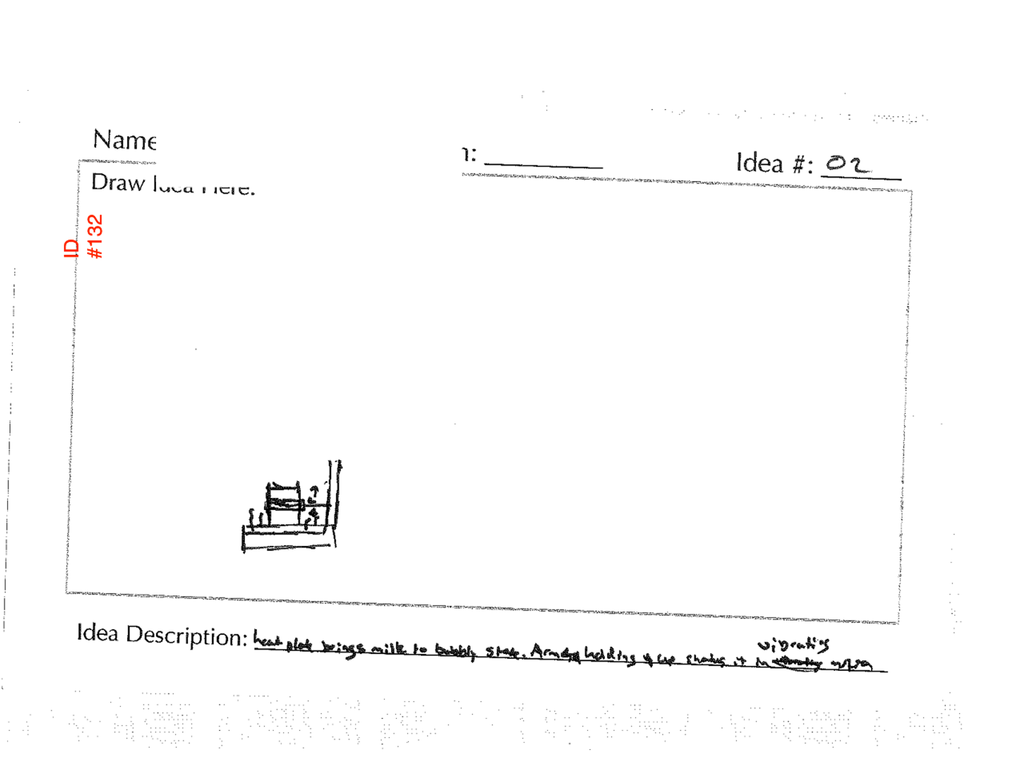 Name
n: Idea #: 02
Draw Idea Here:
ID
#132
vigrating
Idea Description: heat plate brings milk to bubbly state. Arm holding cup shakes it in